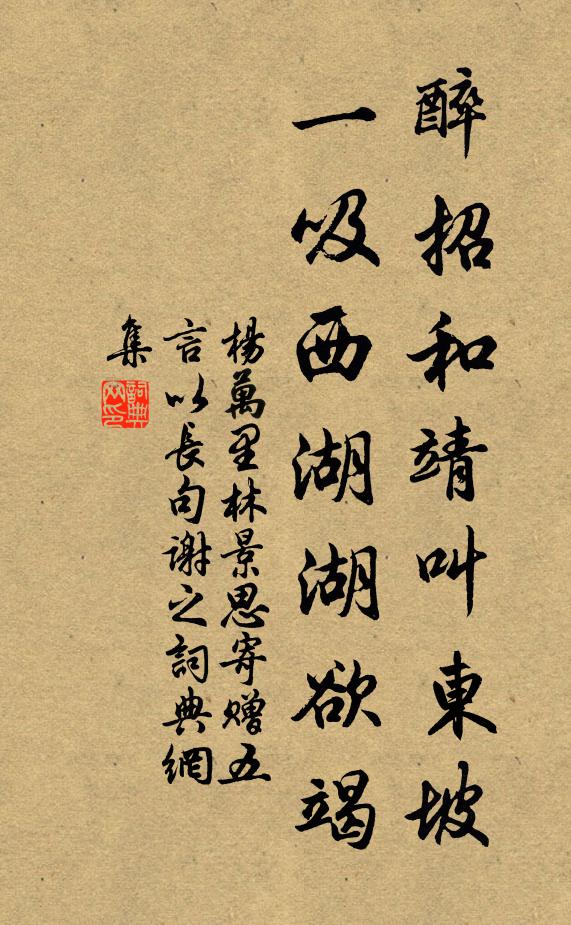 醉招和靖叫東坡
一吸西湖湖欲竭
楊萬里林景思寄贈五
言以長句謝之詞典網
集
詞典
网印